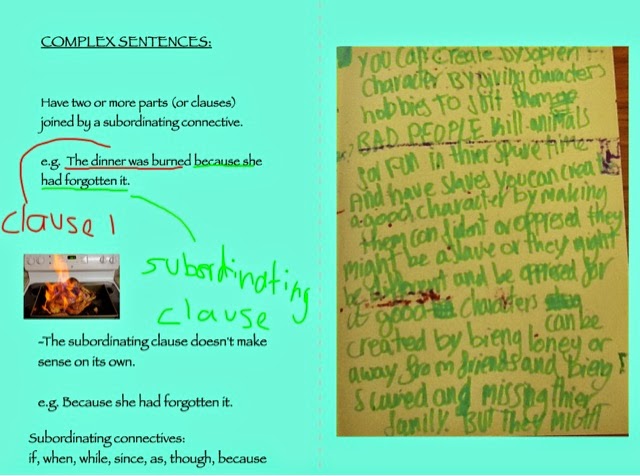 COMPLEX SENTENCES:
Have two or more parts (or clauses)
joined by a subordinating connective.
e.g. The dinner was burned because she
had forgotten it.
clause 1
subordinating
clause
-The subordinating clause doesn't make
sense on its own.
e.g. Because she had forgotten it.
Subordinating connectives:
if, when, while, since, as, though, because
You can create by
character By giving characters
hobbies To suit
BAD PEOPLE kill animals
for fun in thier spare time
And have slaves you can
a good character by making
them confident or oppresed they
might be a slave or they might
be and be oppresed for
good characters
can be
created by bieng loney or
away from friends and bieng
scared and missing thier
family. BUT They MIGHT